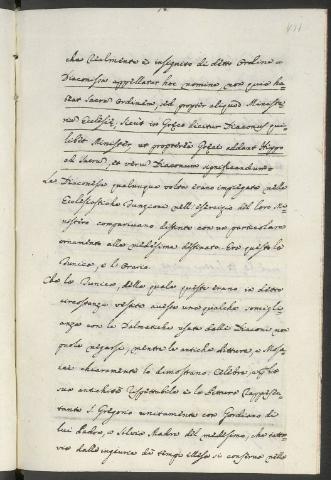 che realmente è insignito di detto Ordine =
Diaconissa appellatur hoc nomine, non quia ha=
beat Sacrum Ordinem, sed propter aliquod Ministe=
rium Ecclesiæ, sicut in Græco dicitur Diaconus qui=
libet Minister, ut propterea Græci addant Hiero
id Sacrum, et verum Diaconum significandum =
Le Diaconesse qualunque volta erano impiegate nelle
Ecclesiastiche Funzioni nell'esercizio del loro Mi=
nistero comparivano distinte con un particolare
ornamento alle medesime destinato. Era questo la
Tunica, e l'Orario.
Che la Tunica, della quale queste erano in dette
circostanze vestite avesse una qualche somigli=
anza con la Dalmatica usata dalli Diaconi non
puole negarsi, mentre le antiche Pitture, e Mosa=
ici chiaramente lo dimostrano. Celebre, e per la
sua antichità rispettabile è la Pittura rappresen=
tante S. Gregorio unitamente con Gordiano di
lui Padre, e Silvia Madre del medesimo, che tutta=
via dalle ingiurie de' tempi illesa si conserva nella